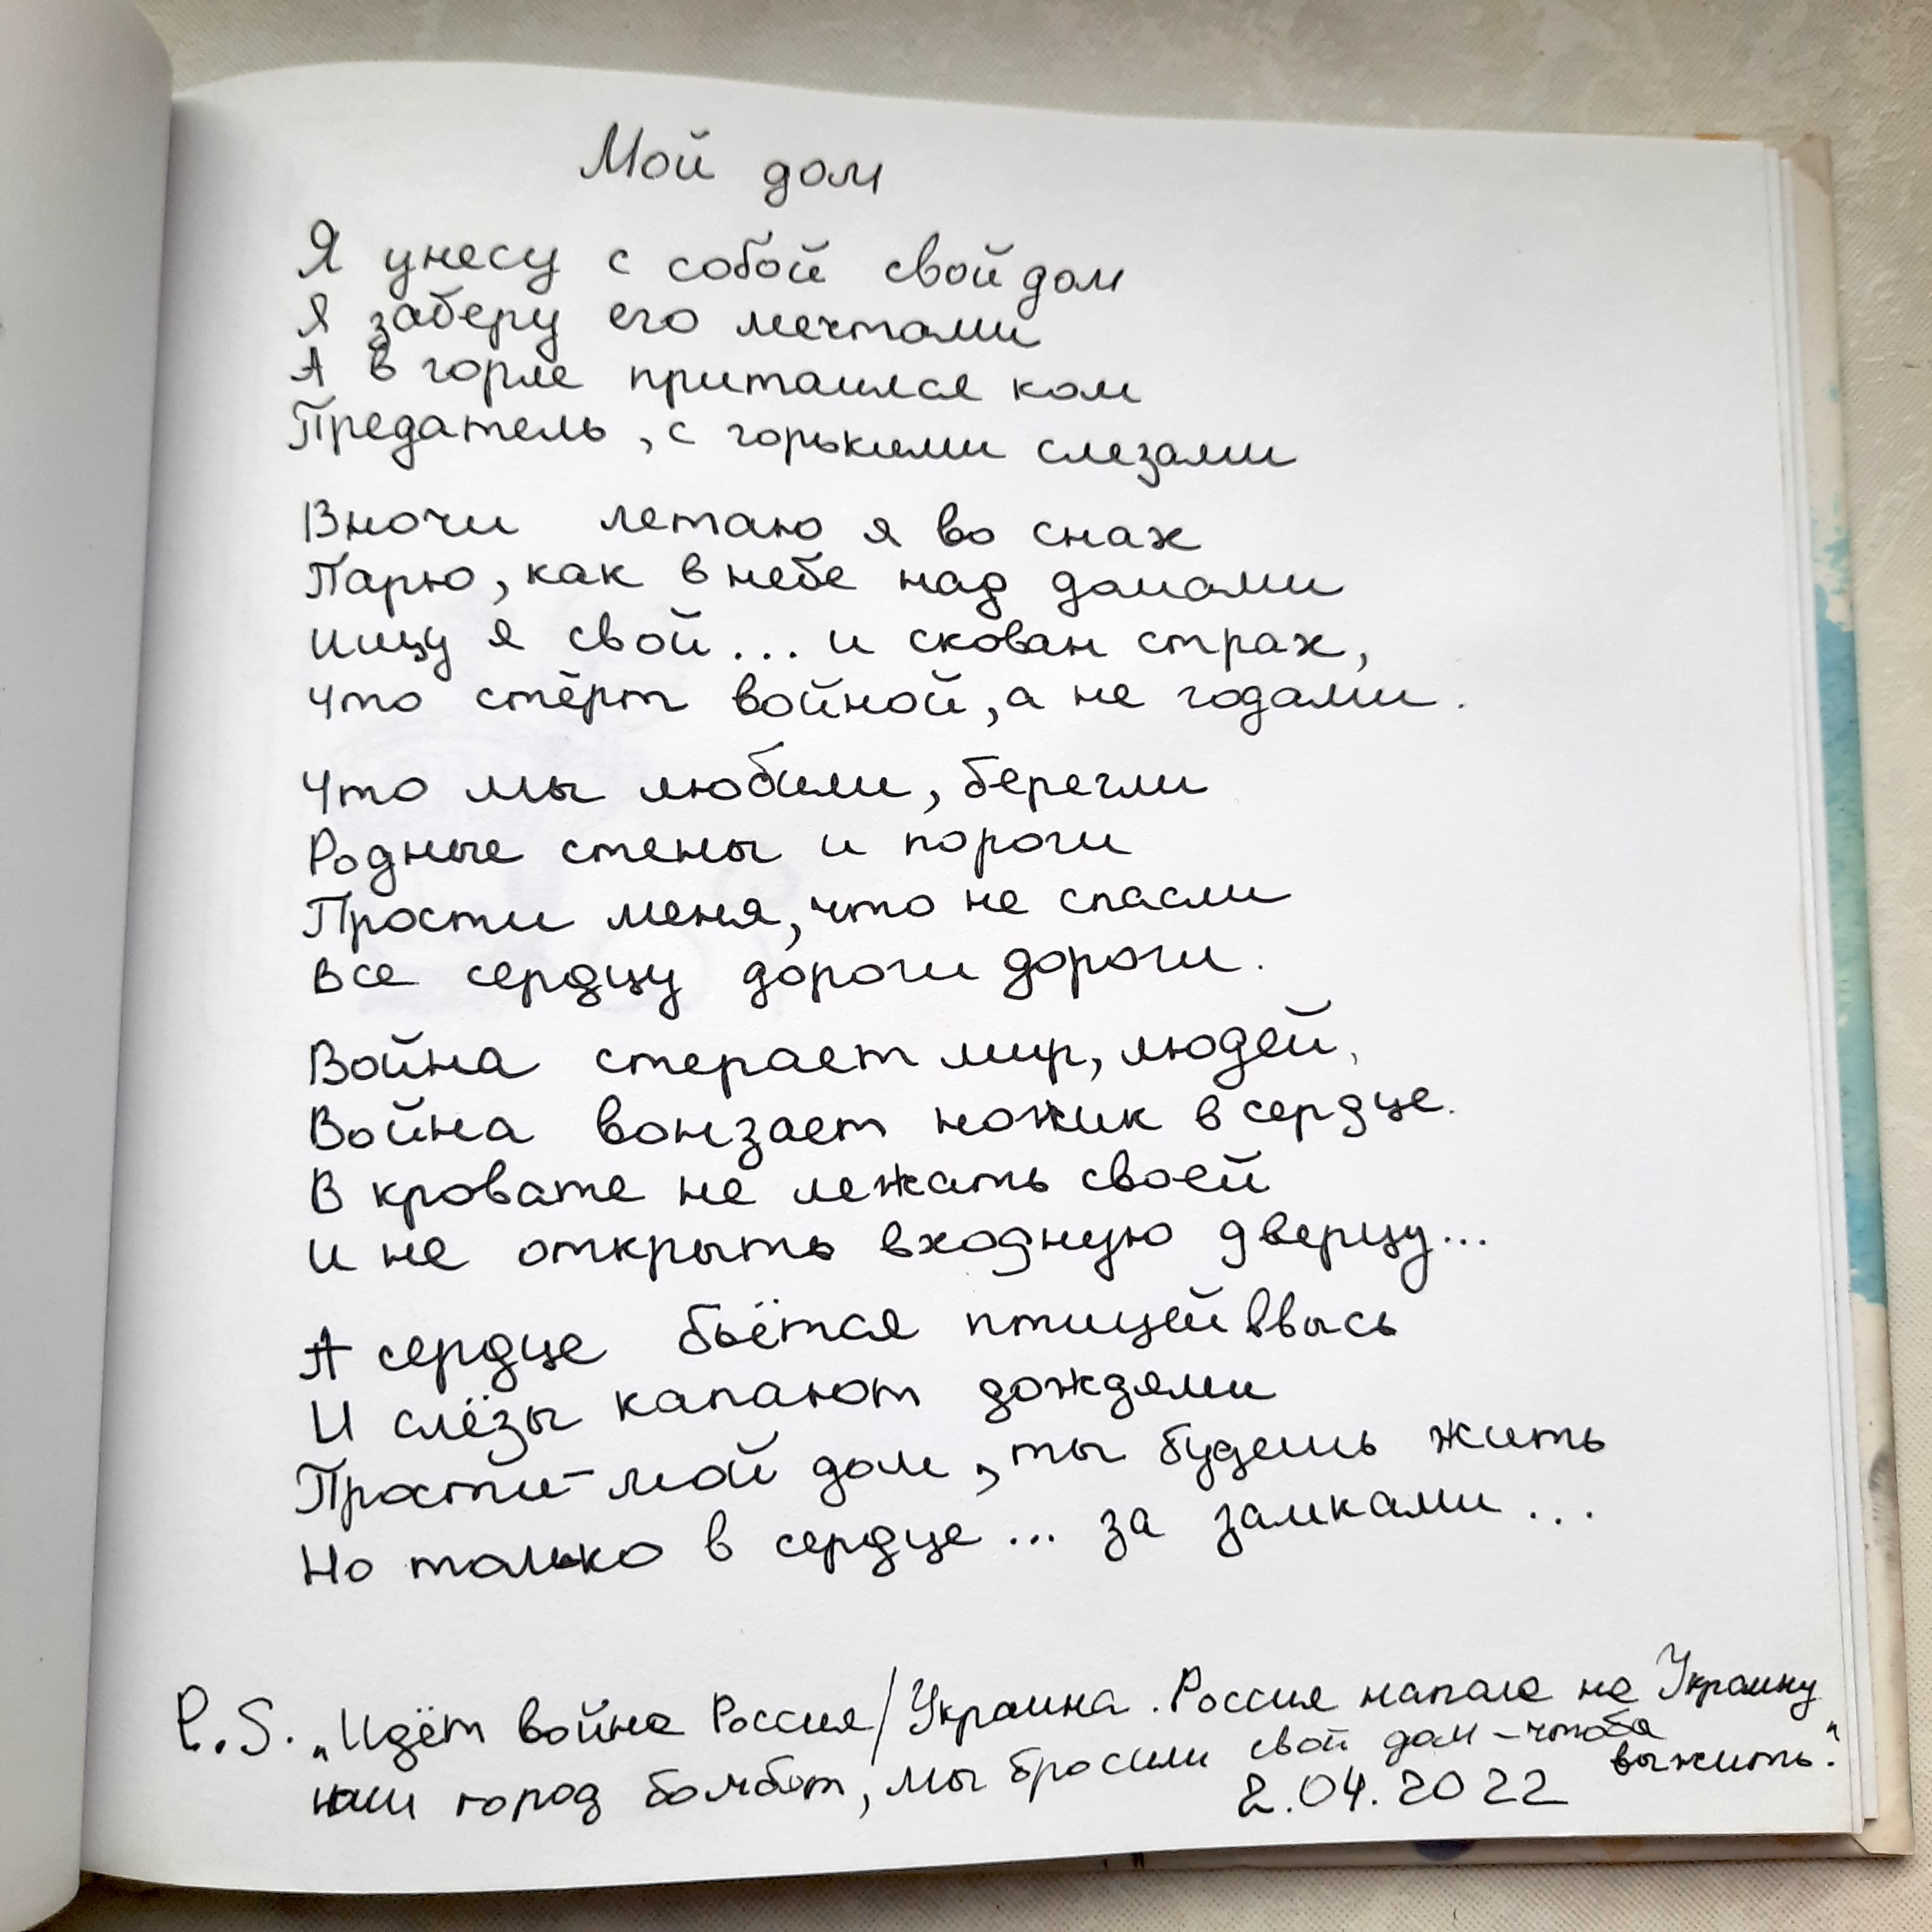 Мой дом
Я унесу с собой свой дом
Я заберу его мечтами
А в горле притаился ком
Предатель, с горькими слезами
Вночи летаю я во снах
Парю, как в небе над домами
Ищу я свой... и скован страх,
что стёрт войной, а не годами.
Что мы любили, берегли
Родные стены и пороги
Прости меня, что не спасли
все сердцу дороги дороги.
Война стерает мир, людей,
Война вонзает ножик в сердце.
В кровате не лежать своей
И не открыть входную дверцу...
А сердце бьётся птицей ввысь
И слёзы капают дождями
Прости-мой дом, ты будешь жить
Но только в сердце... за замками...
P.S. „Идёт война Россия/Украина. Россия напала на Украину
наш город бомбят, мы бросили свой дом - чтоба
выжить."
2.04.2022